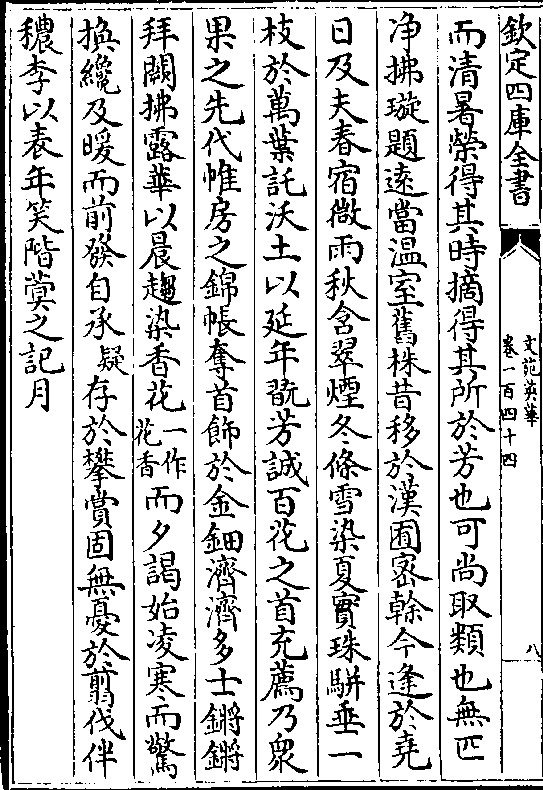 欽定四庫全書
文苑英華
卷一百四十四
八
而清暑榮得其時摘得其所於芳也可尚取類也無匹
净拂璇題遠當温室舊株昔移於漢囿宻幹今逢於堯
日及夫春宿微雨秋含翠煙冬條雪染夏實珠駢垂一
枝於萬葉託沃土以延年翫芳誠百花之首充薦乃衆
果之先代帷房之錦帳奪首飾於金鈿濟濟多士鏘鏘
拜闕拂露華以晨趨染香花一作花香而夕謁始凌寒而驚
換纔及暖而前發自承疑存於攀賞固無憂於翦伐伴
穠李以表年笑階蓂之記月